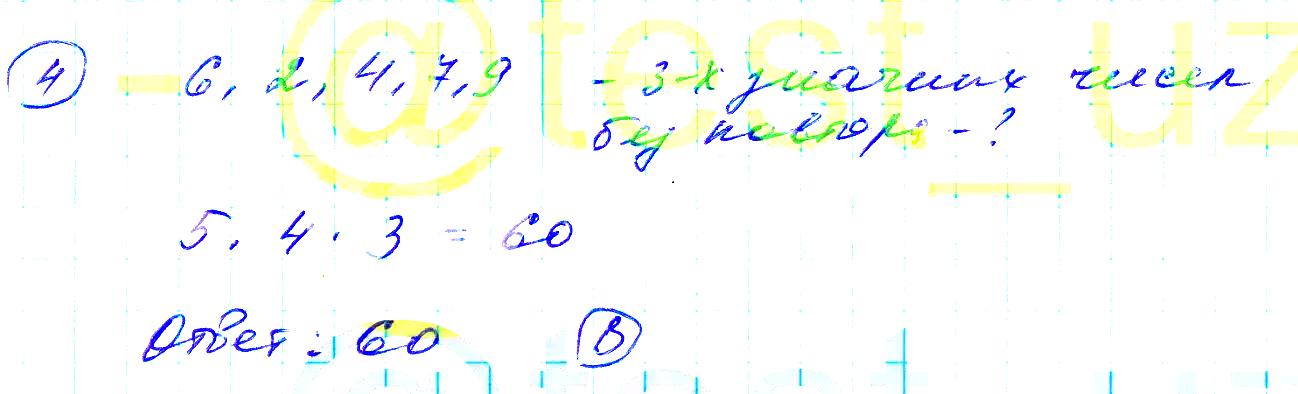 4 6, 2, 4, 7, 9 - 3-х значных чисел
без повтор. - ?
5 · 4 · 3 = 60
Ответ: 60 В
@test_uz